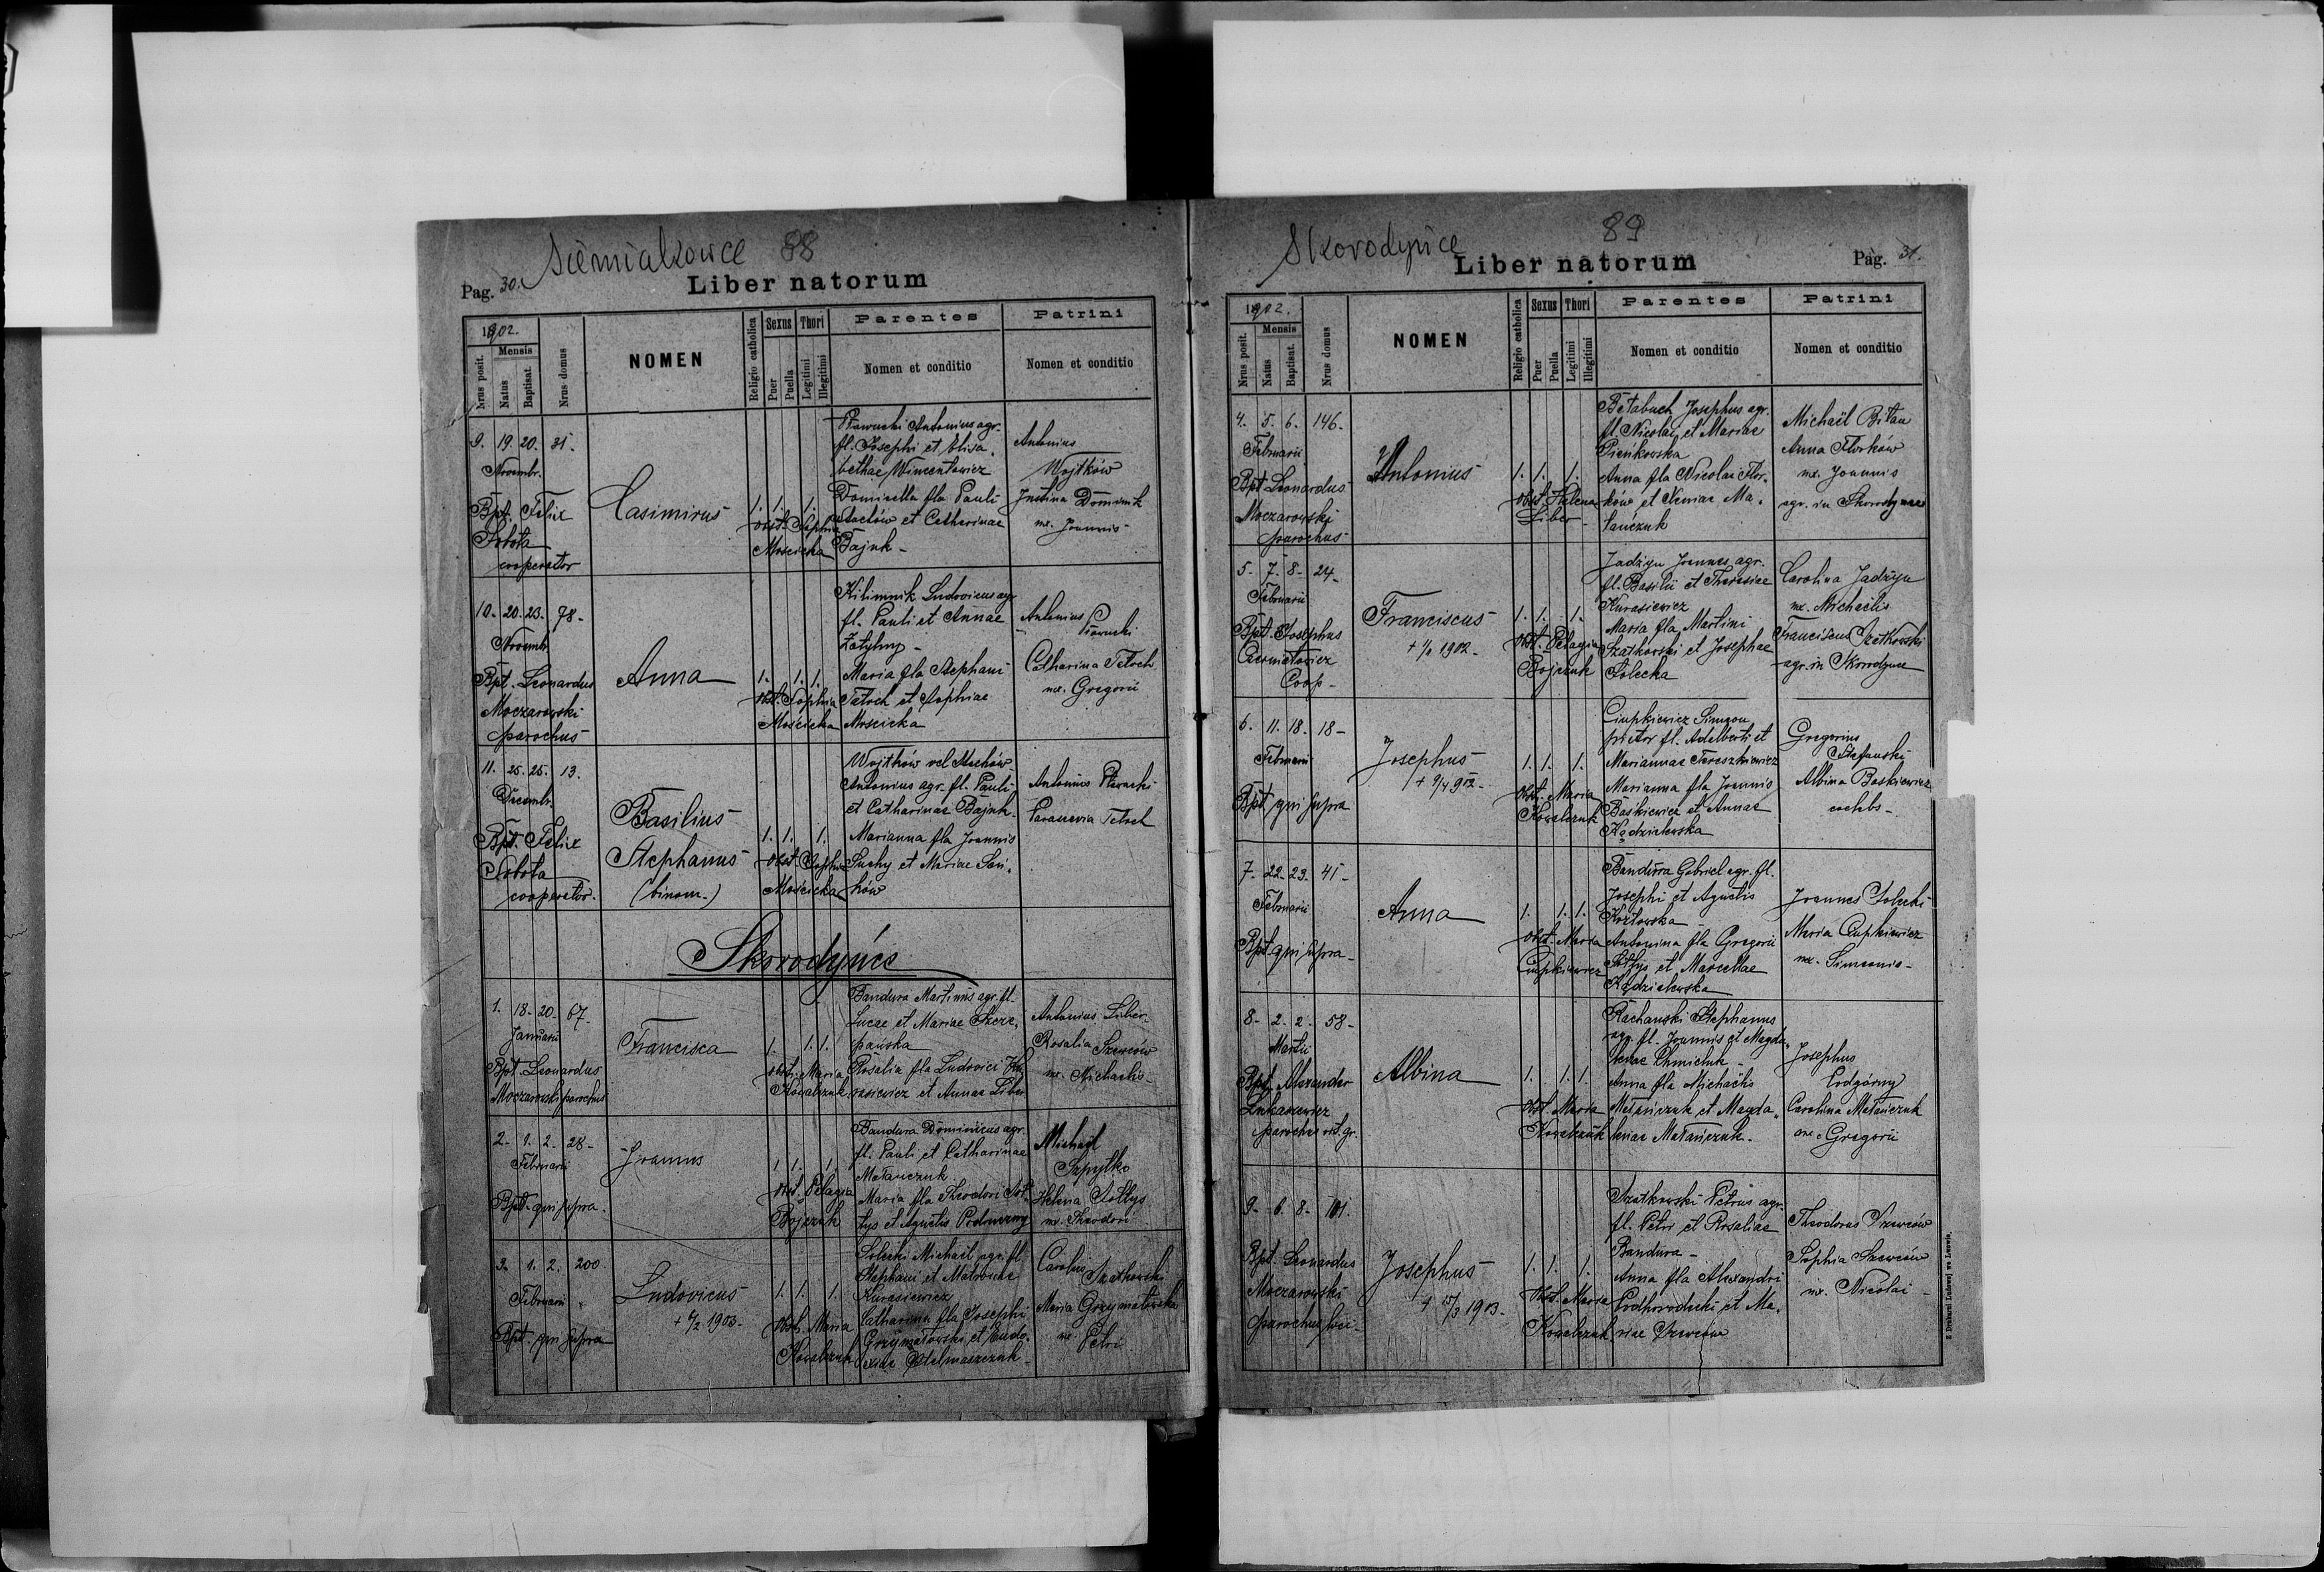 Siemiakowce 88
Pag. 30.
Liber natorum
1902.
Nrus posit.
Mensis
Natus
Baptisat.
Nrus domus
NOMEN
Religio catholica
Sexus
Puer
Puella
Thori
Legitimi
Illegitimi
Parentes
Nomen et conditio
Patrini
Nomen et conditio
9. 19. 20. 31.
Novembr.
Bpt. Felix
Sobota
cooperator
Casimirus
1. 1. 1.
obst. Sophia
Mościcka
Antonius agr.
fl. Josephi et Elisa-
bethae Wincentowicz
Domicella fla Pauli
et Catharinae
Bajuk -
Antonius
Wojtków
Justina Dominik
ux. Joannis
10. 20. 23. 78.
Novembr.
Bpt. Leonardus
Moczarowski
parochus
Anna
1. 1. 1.
obst. Sophia
Mościcka
Kilimnik Ludovicus agr.
fl. Pauli et Annae
Zatylny -
Maria fla Stephani
Tetrch et Sophiae
Mościcka
Antonius
Catharina Tetrch
ux. Gregorii
11. 25. 25. 13.
Decembr.
Bpt. Felix
Sobota
cooperator.
Basilius
Stephanus
(binom.)
1. 1. 1.
obst. Sophia
Mościcka
Wojtków vel
Antonius agr. fl. Pauli
et Catharinae Bajuk.
Marianna fla Joannis
Suchy et Mariae
ków
Antonius
Parascevia Tetrch
Skorodyńce
1. 18. 20. 67.
Januarii
Bpt. Leonardus
Moczarowski parochus
Francisca
1. 1. 1.
obst. Maria
Kowalczuk
Bandura Martinus agr. fl.
Lucae et Mariae Szcze-
pańska
Rosalia fla Ludovici Ku-
rasiewicz et Annae Liber
Antonius Liber
Rosalia Szewców
ux. Michaelis
2. 1. 2. 28.
Februarii
Bpt. qui supra.
Joannes
1. 1. 1.
obst. Pelagia
Bojczuk
Bandura Dominicus agr.
fl. Pauli et Catharinae
Matańczuk
Maria fla Theodori Soł-
tys et Agnetis
Michael
Szpytko
Helena Sołtys
ux. Theodori
3. 1. 2. 200
Februarii
Bpt. qui supra
Ludovicus
+ 4/2 1903.
1. 1. 1.
obst. Maria
Kowalczuk
Solecki Michael agr. fl.
Stephani et Matronae
Kurasiewicz
Catharina fla Josephi
Grzymałowski et Eudo-
xiae Stelmaszczuk
Carolus
Szatkowski
Maria Grzymałowska
ux. Petri
Skorodyńce
89
Liber natorum
Pag. 31.
1902.
Nrus posit.
Mensis
Natus
Baptisat.
Nrus domus
NOMEN
Religio catholica
Sexus
Puer
Puella
Thori
Legitimi
Illegitimi
Parentes
Nomen et conditio
Patrini
Nomen et conditio
4. 5. 6. 146.
Februarii
Bpt. Leonardus
Moczarowski
parochus
Antonius
1. 1. 1.
obst. Helena
Liber -
Bętabuch Josephus agr.
fl. Nicolai et Mariae
Pieńkowska
Anna fla Nicolai Flor-
ków et Xeniae Ma-
tańczuk
Michaël Bilan
Anna Florków
ux. Joannis
agr. in Skorodyńce
5. 7. 8. 24.
Februarii
Bpt. Josephus
Coop -
Franciscus
1902.
1. 1. 1.
obst. Pelagia
Bojczuk
Jadżyn Joannes agr.
fl. Basilii et Theresiae
Kurasiewicz
Maria fla Martini
Szatkowski et Josephae
Solecka
Carolina Jadżyn
ux. Michaëlis
Franciscus Szatkowski
agr. in Skorodyńce
6. 11. 18. 18.
Februarii
Bpt. qui supra
Josephus
1. 1. 1.
obst. Maria
Kowalczuk
Ciupkiewicz Simeon
pictor fl. Adalberti et
Mariannae Tereszkiewicz
Marianna fla Joannis
Baśkiewicz et Annae
Kądzielewska
Gregorius
Stefanski
Albina Baskiewicz
coelebs -
7. 22. 23. 41.
Februarii
Bpt. qui supra -
Anna
1. 1. 1.
obst. Maria
Ciupkiewicz
Bandura Gabriel agr. fl.
Josephi et Agnetis
Kozłowska -
Antonina fla Gregorii
Sołtys et Marcellae
Kądzielewska
Joannes Solecki
Maria Ciupkiewicz
ux. Simeonis -
8. 2. 2. 58.
Martii
Bpt. Alexander
Lukasiewicz
parochus rit. gr.
Albina
1. 1. 1.
obst. Maria
Kowalczuk
Rachański Stephanus
agr. fl. Joannis et Magda-
lenae Chmieluk -
Anna fla Michaëlis
Matańczuk et Magda-
lenae Matańczuk.
Josephus
Podgórny
Carolina Matańczuk
ux. Gregorii
9. 6. 8. 101.
Bpt. Leonardus
Moczarowski
parochus loci -
Josephus
+ 15/3 1903.
1. 1. 1.
obst. Maria
Kowalczuk
Szatkowski Petrus agr.
fl. Petri et Rosaliae
Bandura -
Anna fla Alexandri
Podhorodecki et Ma-
riae Szewców
Theodorus Szewców
Sophia Szewców
ux. Nicolai -
Z Drukarni Ludowej we Lwowie.